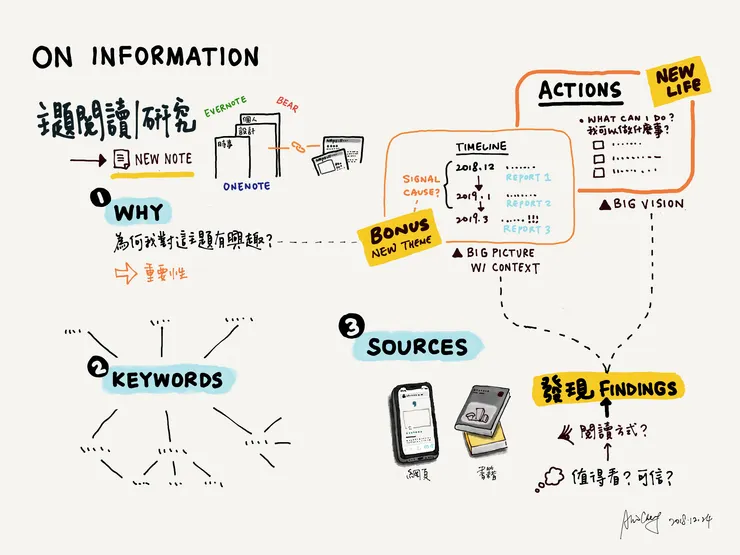 ON INFORMATION
主題閱讀/研究
NEW NOTE
EVERNOTE
BEAR
個人
設計
時事
ONENOTE
1 WHY
為何我對這主題有興趣?
重要性
2 KEYWORDS
3 SOURCES
網頁
書籍
ACTIONS
NEW
LIFE
WHAT CAN I DO?
我可以做什麼事?
BIG VISION
TIMELINE
2018.12
REPORT 1
SIGNAL
CAUSE?
2019.1
REPORT 2
2019.3
!!!
REPORT 3
BONUS
NEW THEME
BIG PICTURE
W/ CONTEXT
發現 FINDINGS
閱讀方式?
值得看?可信?
2018.12.24